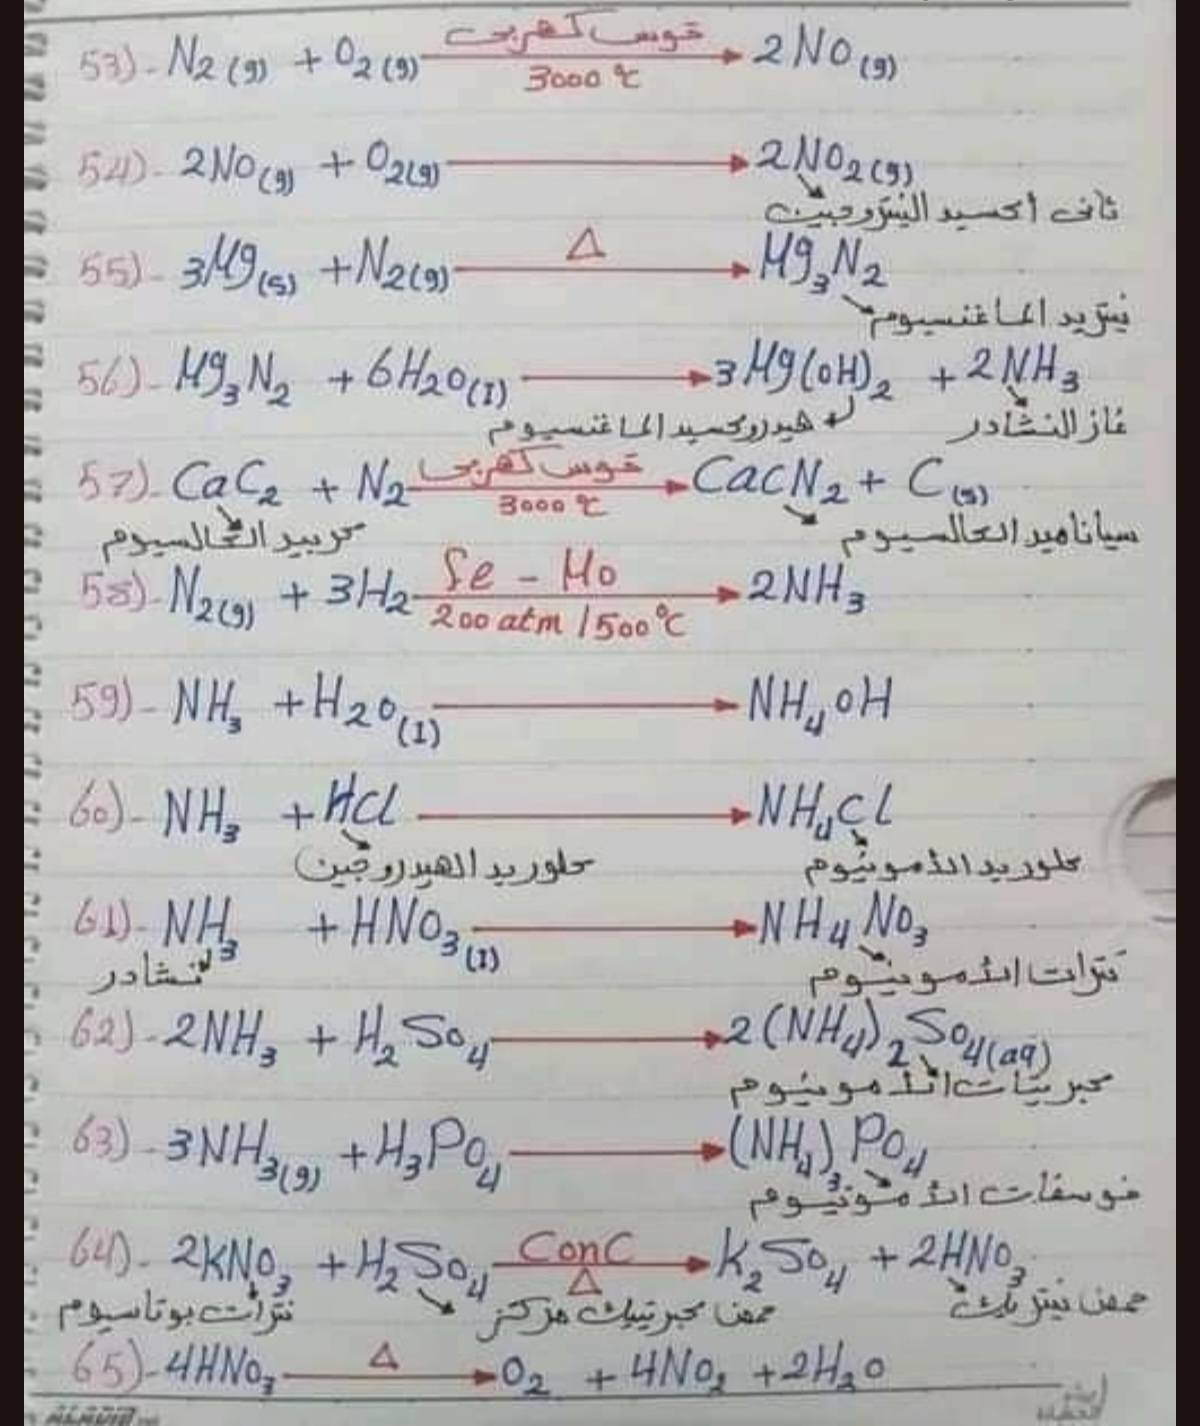 53)- N₂(g) + O₂(g) قوس كهربى 3000 °C → 2NO(g)
54)- 2NO(g) + O₂(g) → 2NO₂(g)
ثانى أكسيد النيتروجين
55)- 3Mg(s) + N₂(g) Δ → Mg₃N₂
نيتريد الماغنسيوم
56)- Mg₃N₂ + 6H₂O(l) → 3Mg(OH)₂ + 2NH₃
هيدروكسيد الماغنسيوم غاز النشادر
57)- CaC₂ + N₂ قوس كهربى 3000 °C → CaCN₂ + C(s)
كربيد الكالسيوم سياناميد الكالسيوم
58)- N₂(g) + 3H₂ Fe - Mo 200 atm / 500 °C → 2NH₃
59)- NH₃ + H₂O(l) → NH₄OH
60)- NH₃ + HCl → NH₄Cl
كلوريد الهيدروجين كلوريد الأمونيوم
61)- NH₃ + HNO₃(l) → NH₄NO₃
نشادر نترات الأمونيوم
62)- 2NH₃ + H₂SO₄ → 2(NH₄)₂SO₄(aq)
كبريتات الأمونيوم
63)- 3NH₃(g) + H₃PO₄ → (NH₄)₃PO₄
فوسفات الأمونيوم
64)- 2KNO₃ + H₂SO₄ ConC Δ → K₂SO₄ + 2HNO₃
نترات بوتاسيوم حمض كبريتيك مركز حمض نيتريك
65)- 4HNO₃ Δ → O₂ + 4NO₂ + 2H₂O